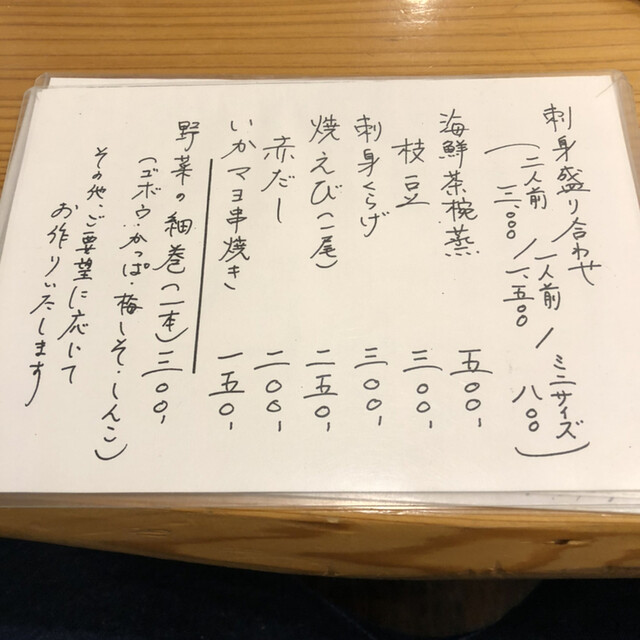 刺身盛り合わせ
(二人前 三、〇〇〇 / 一人前 一、五〇〇 / ミニサイズ 八〇〇)
海鮮茶椀蒸 五〇〇、
枝豆 三〇〇、
刺身くらげ 三〇〇、
焼えび(一尾) 二五〇、
赤だし 二〇〇、
いかマヨ串焼き 一五〇、
野菜の細巻(一本) 三〇〇、
(ゴボウ・かっぱ・梅しそ・しんこ)
その他、ご要望に応じて
お作りいたします